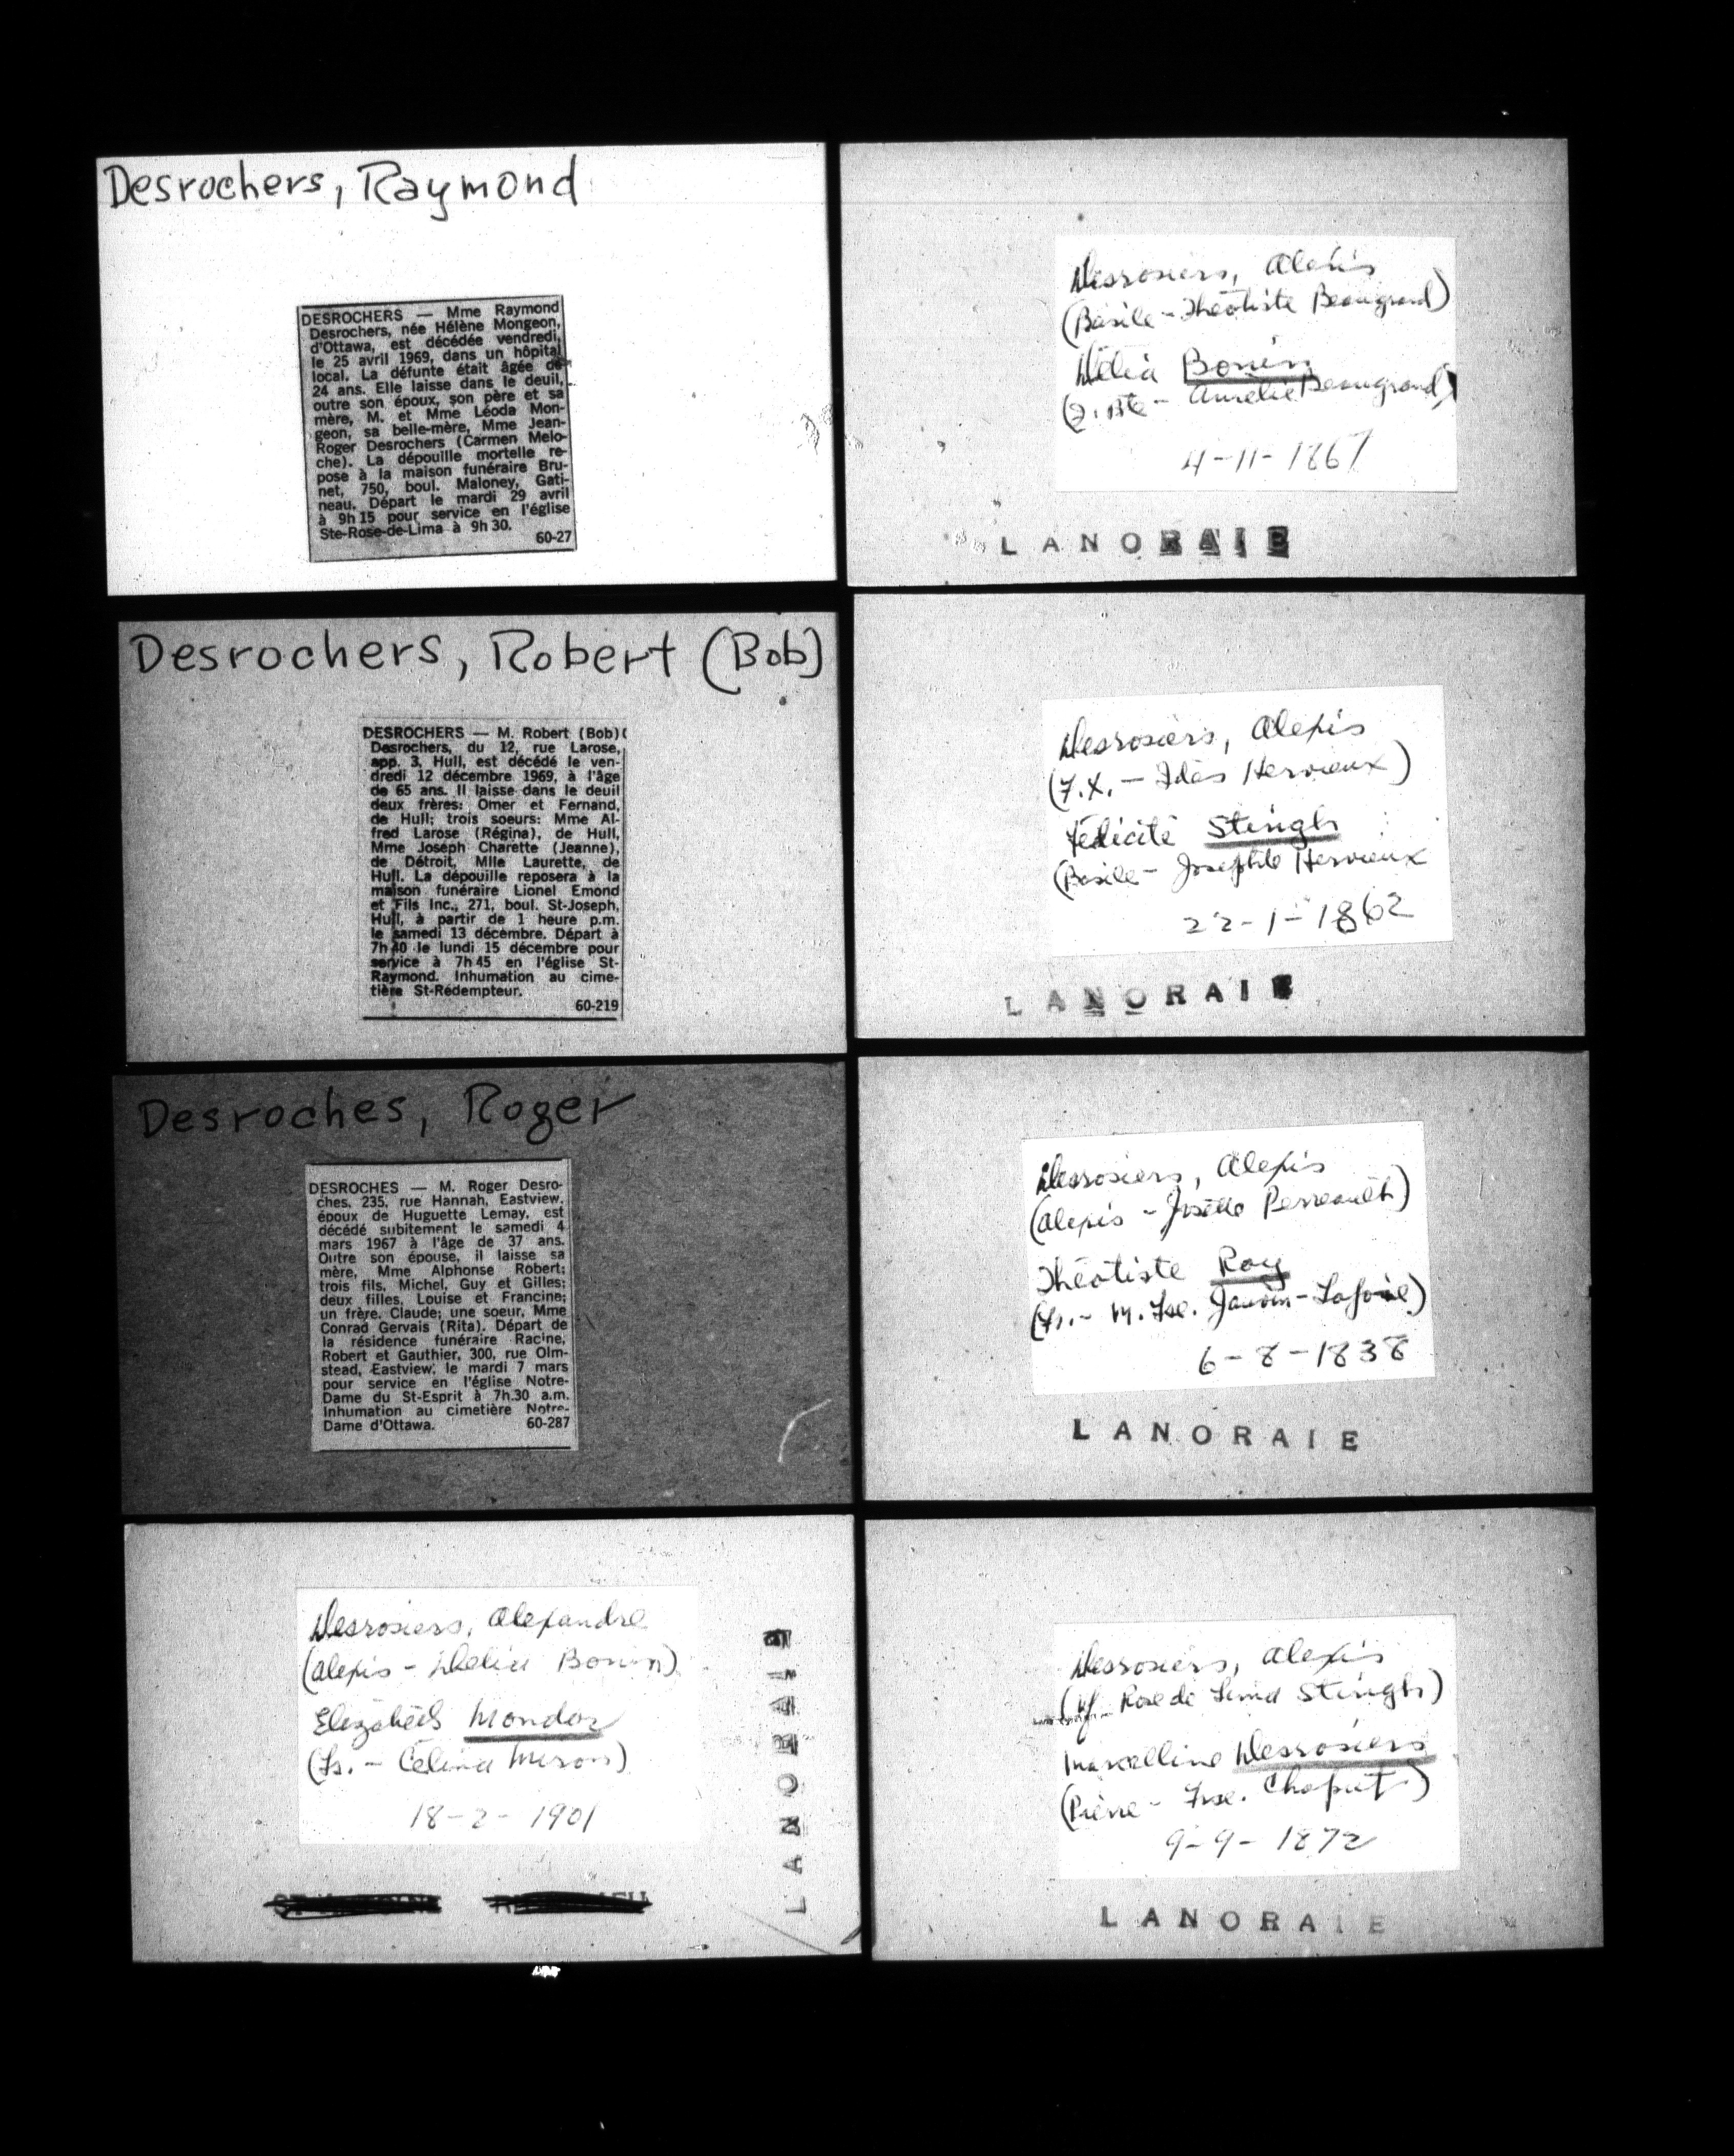 Desrochers, Raymond
DESROCHERS — Mme Raymond
Desrochers, née Hélène Mongeon,
d'Ottawa, est décédée vendredi,
le 25 avril 1969, dans un hôpital
local. La défunte était âgée de
24 ans. Elle laisse dans le deuil,
outre son époux, son père et sa
mère, M. et Mme Léoda Mon-
geon, sa belle-mère, Mme Jean-
Roger Desrochers (Carmen Melo-
che). La dépouille mortelle re-
pose à la maison funéraire Bru-
net, 750, boul. Maloney, Gati-
neau. Départ le mardi 29 avril
à 9h 15 pour service en l'église
Ste-Rose-de-Lima à 9h 30.
60-27
Desrochers, Robert (Bob)
DESROCHERS — M. Robert (Bob)
Desrochers, du 12, rue Larose,
app. 3, Hull, est décédé le ven-
dredi 12 décembre 1969, à l'âge
de 65 ans. Il laisse dans le deuil
deux frères: Omer et Fernand,
de Hull; trois soeurs: Mme Al-
fred Larose (Régina), de Hull,
Mme Joseph Charette (Jeanne),
de Détroit, Mlle Laurette, de
Hull. La dépouille reposera à la
maison funéraire Lionel Emond
et Fils Inc., 271, boul. St-Joseph,
Hull, à partir de 1 heure p.m.
le samedi 13 décembre. Départ à
7h 40 le lundi 15 décembre pour
service à 7h 45 en l'église St-
Raymond. Inhumation au cime-
tière St-Rédempteur.
60-219
Desroches, Roger
DESROCHES — M. Roger Desro-
ches, 235, rue Hannah, Eastview,
époux de Huguette Lemay, est
décédé subitement le samedi 4
mars 1967 à l'âge de 37 ans.
Outre son épouse, il laisse sa
mère, Mme Alphonse Robert;
trois fils, Michel, Guy et Gilles;
deux filles, Louise et Francine;
un frère, Claude; une soeur, Mme
Conrad Gervais (Rita). Départ de
la résidence funéraire Racine,
Robert et Gauthier, 300, rue Olm-
stead, Eastview, le mardi 7 mars
pour service en l'église Notre-
Dame du St-Esprit à 7h.30 a.m.
Inhumation au cimetière Notre-
Dame d'Ottawa. 60-287
Desrosiers, Alexandre
(Alexis - Delia Bonin)
Elizabeth Mondor
(Fs. - Célina Miron)
18-2-1901
LANORAIE
Desrosiers, Alexis
(Basile - Théotiste Beaugrand)
Délia Bonin
(J. Bte - Aurélie Beaugrand)
4-11-1867
LANORAIE
Desrosiers, Alexis
(F.X. - Hervieux)
Félicité Stingh
(Basile - Josephte Hervieux
22-1-1862
LANORAIE
Desrosiers, Alexis
(Alexis - Josette Perreault)
Théotiste Roy
(Fs. - M. Fse. Lafoie)
6-8-1838
LANORAIE
Desrosiers, Alexis
(Vf Rose de Lima Stingh)
Marcelline Desrosiers
(Pierre - Frse. Chaput)
9-9-1872
LANORAIE